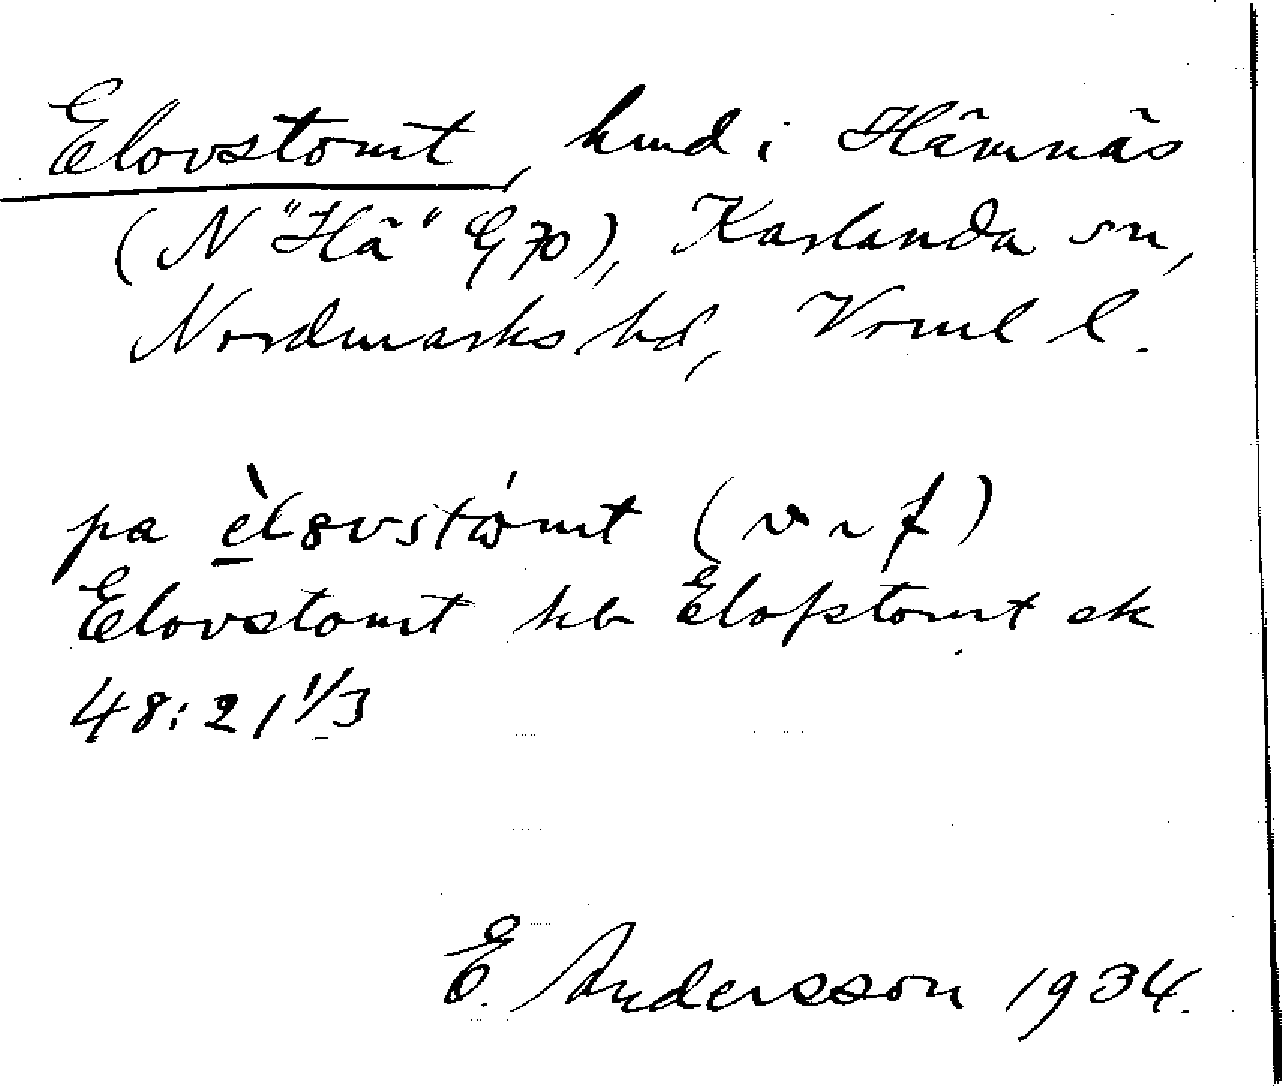 Elovstomt, hmd i Hämnäs
(N "Hä" G 70), Karlanda sn,
Nordmarks hd, Verml l.
pa èl8vstómt (v r f)
Elovstomt kb Elofstomt ek
48:21 1/3
E. Andersson 1934.